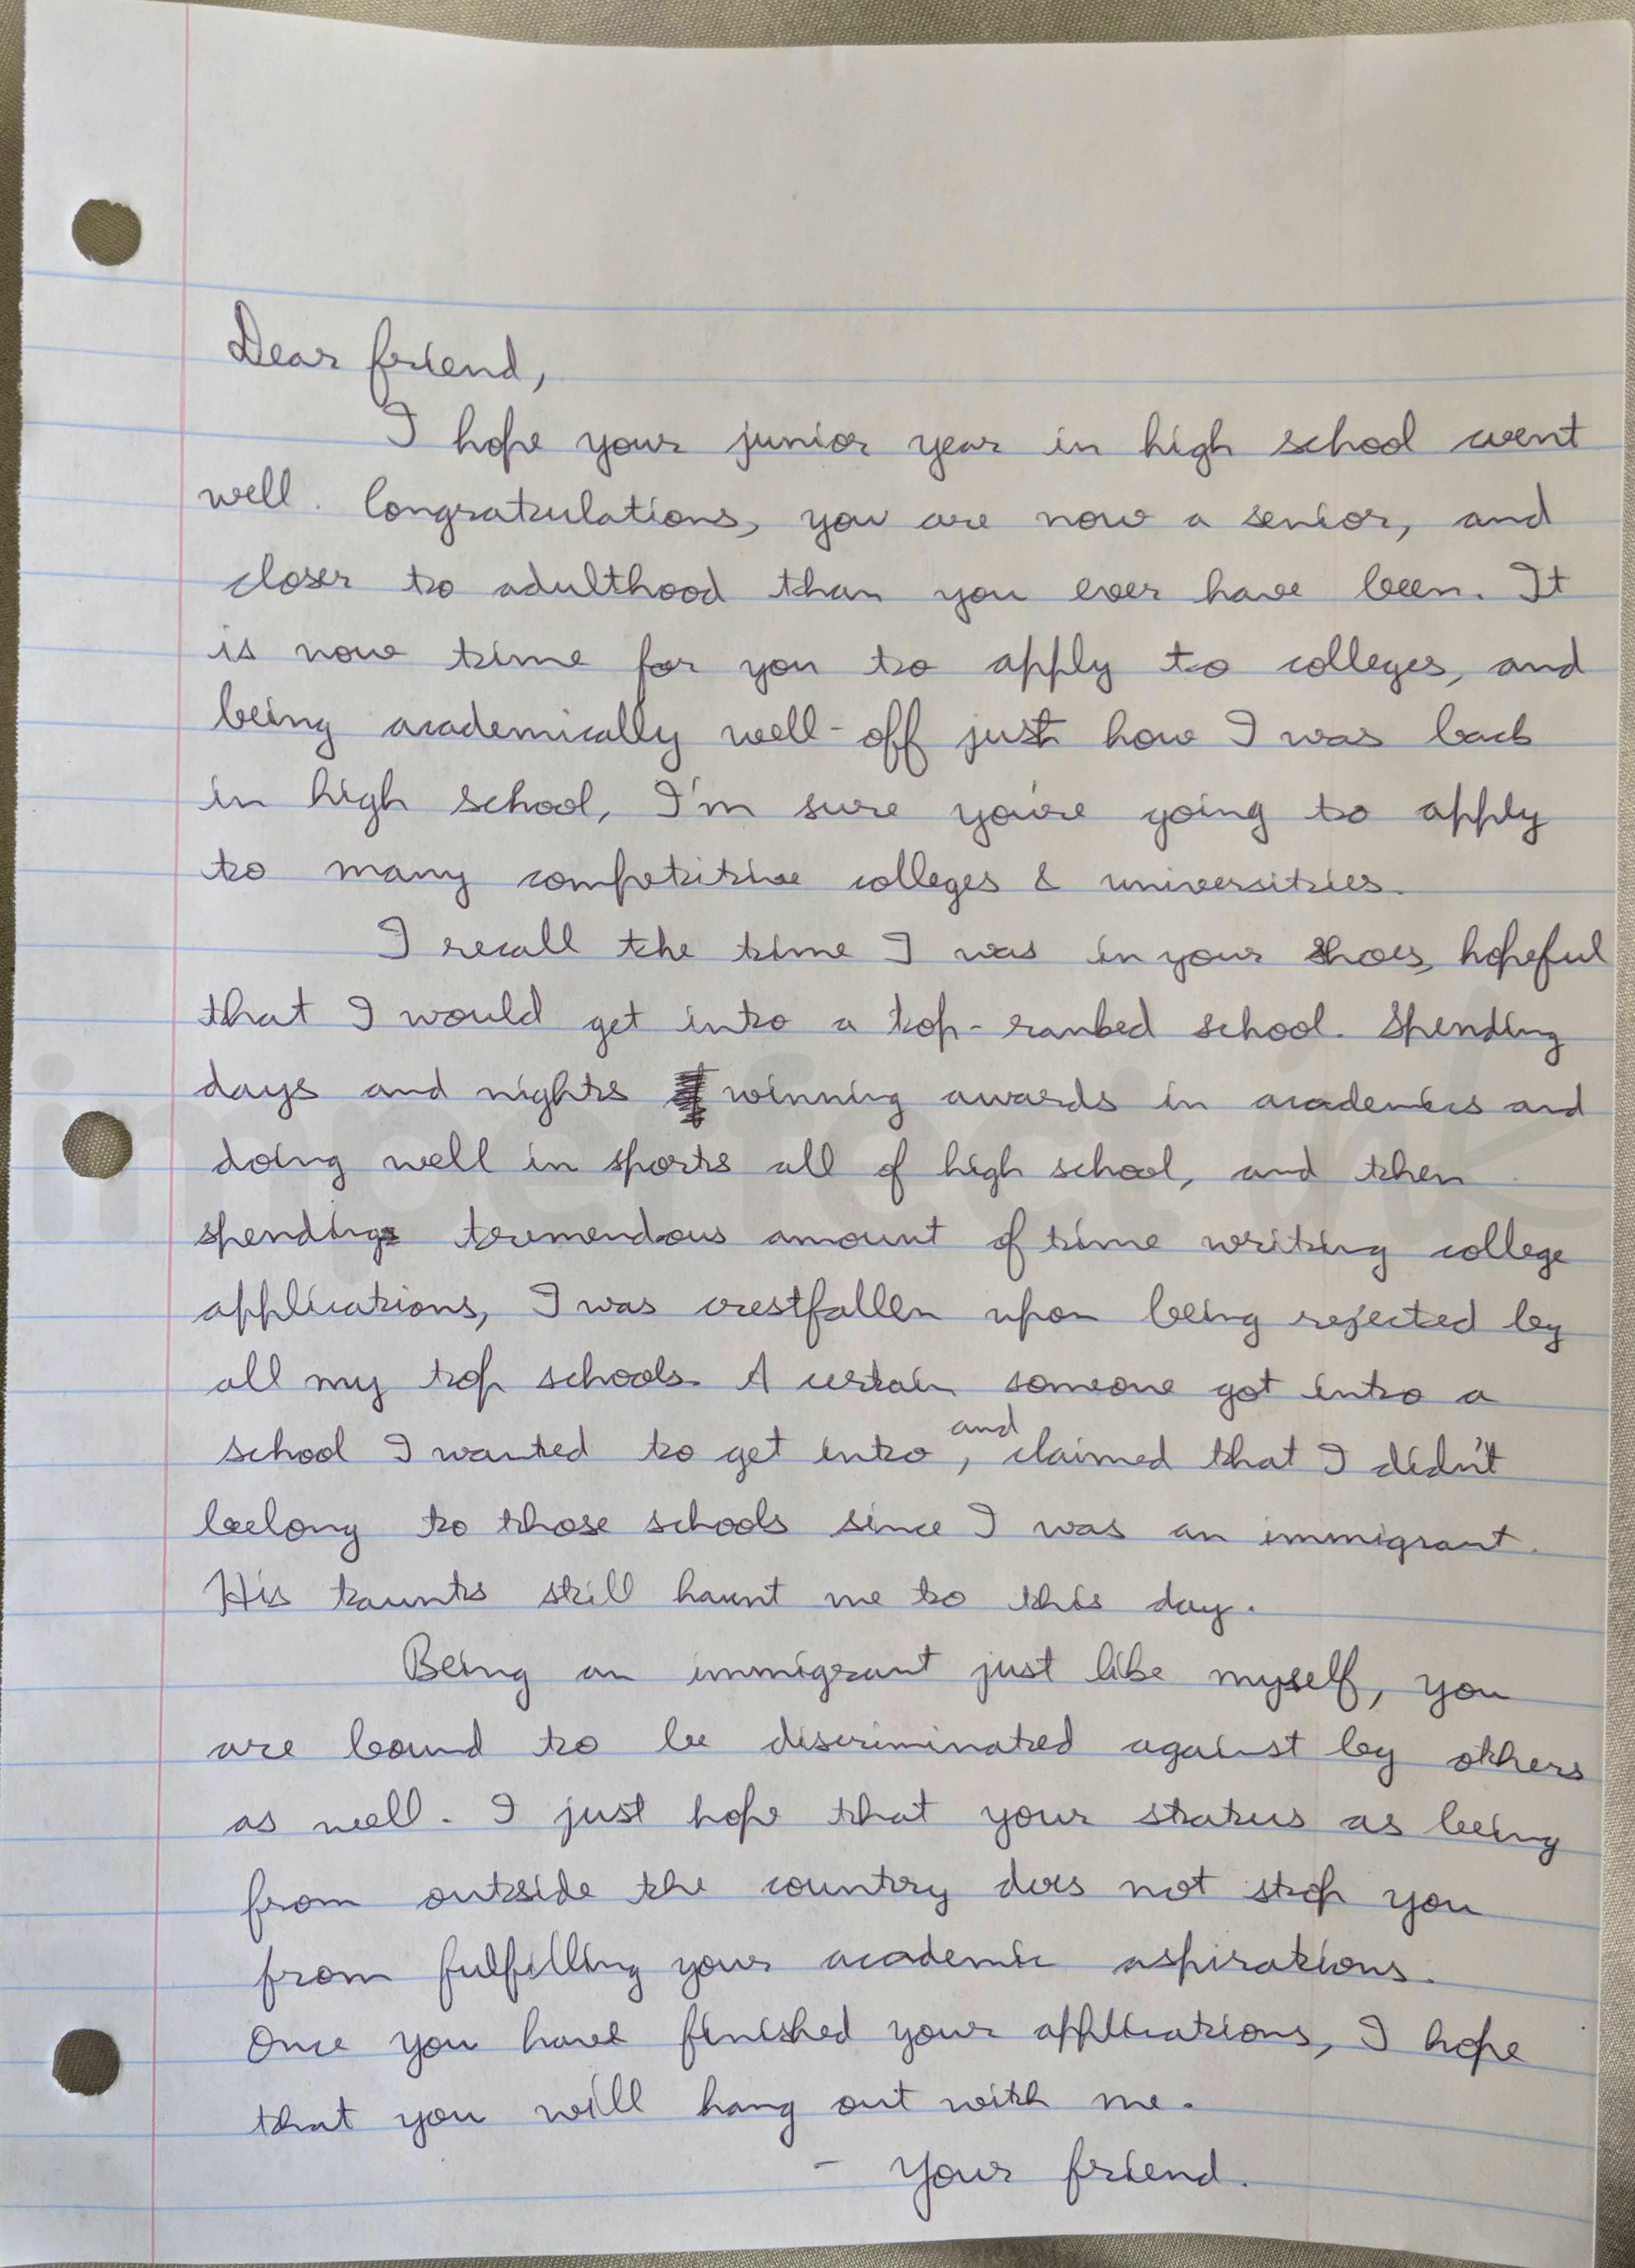 Dear friend,
I hope your junior year in high school went
well. Congratulations, you are now a senior, and
closer to adulthood than you ever have been. It
is now time for you to apply to colleges, and
being academically well-off just how I was back
in high school, I'm sure you're going to apply
to many competitive colleges & universities.
I recall the time I was in your shoes, hopeful
that I would get into a top-ranked school. Spending
days and nights winning awards in academics and
doing well in sports all of high school, and then
spending tremendous amount of time writing college
applications, I was crestfallen upon being rejected by
all my top schools. A certain someone got into a
school I wanted to get into, and claimed that I didn't
belong to those schools since I was an immigrant.
His taunts still haunt me to this day.
Being an immigrant just like myself, you
are bound to be discriminated against by others
as well. I just hope that your status as being
from outside the country does not stop you
from fulfilling your academic aspirations.
Once you have finished your applications, I hope
that you will hang out with me.
- Your friend.